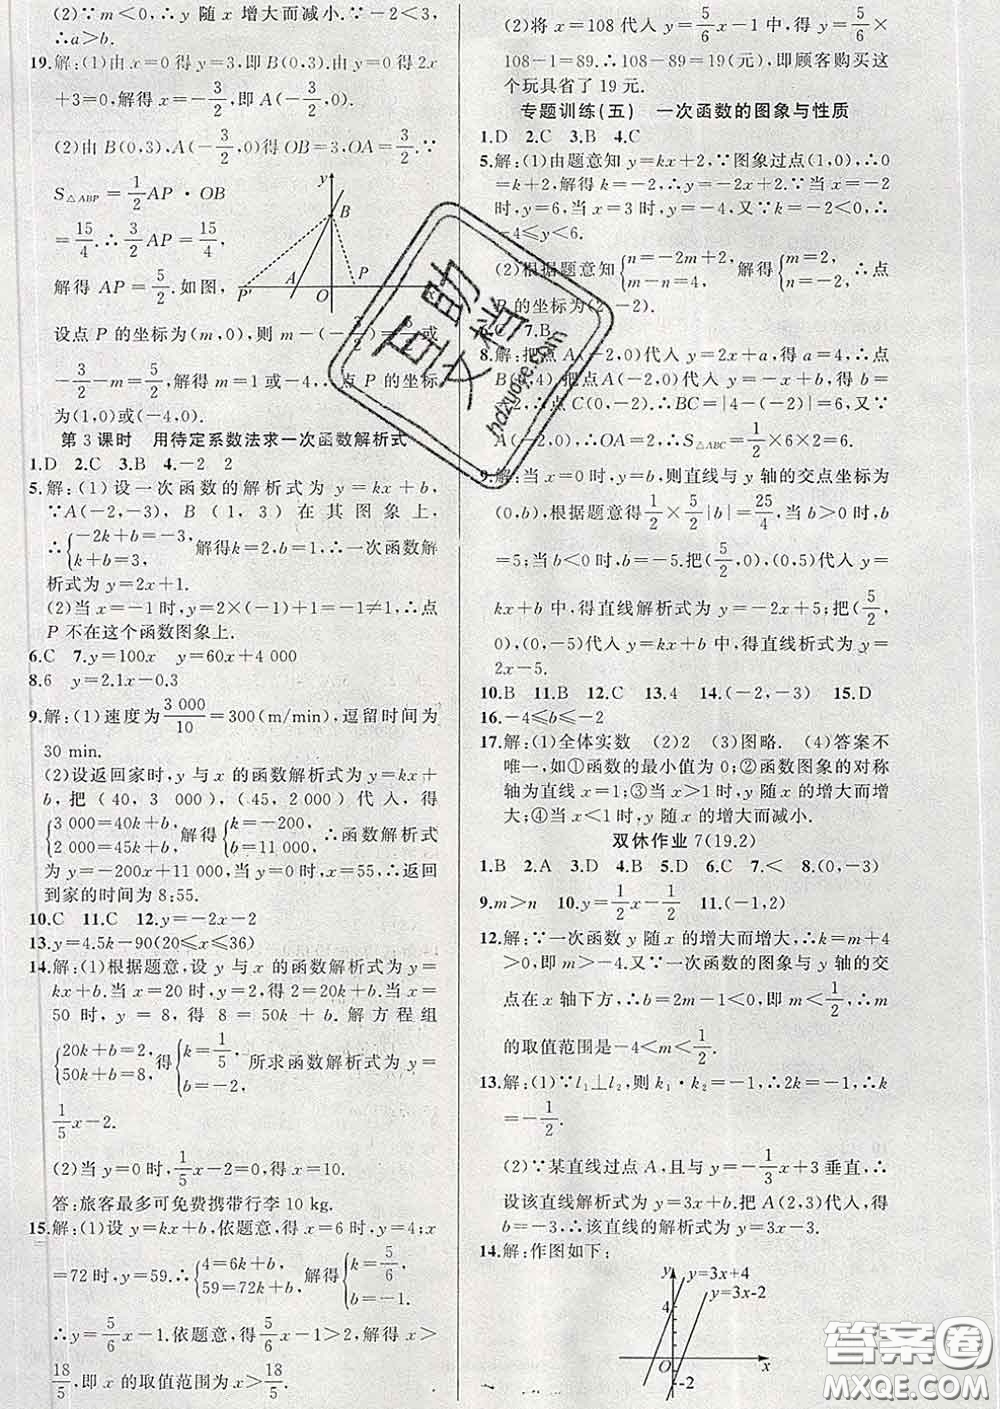 (2)∵m<0,∴y 随 x 增大而减小.∵-2<3,
∴a>b.
19.解:(1)由 x=0 得 y=3,即 B(0,3).由 y=0 得 2x
+3=0,解得 x=-3/2,即 A(-3/2,0).
(2)由 B(0,3),A(-3/2,0)得 OB=3,OA=3/2.∵
S△ABP=1/2AP·OB
=15/4.∴3/2AP=15/4,
解得 AP=5/2.如图,
y
B
P′ A O P
设点 P 的坐标为(m,0),则 m-(-3/2)=5/2或
-3/2-m=5/2,解得 m=1 或-4.∴点 P 的坐标
为(1,0)或(-4,0).
第 3 课时 用待定系数法求一次函数解析式
1.D 2.C 3.B 4.-2 2
5.解:(1)设一次函数的解析式为 y=kx+b,
∵A(-2,-3),B(1,3)在其图象上,
∴{-2k+b=-3, k+b=3, 解得k=2,b=1.∴一次函数解
析式为 y=2x+1.
(2)当 x=-1 时,y=2×(-1)+1=-1≠1,∴点
P 不在这个函数图象上.
6.C 7.y=100x y=60x+4 000
8.6 y=2.1x-0.3
9.解:(1)速度为3 000/10=300(m/min),逗留时间为
30 min.
(2)设返回家时,y 与 x 的函数解析式为 y=kx+
b,把(40,3 000),(45,2 000)代入,得
{3 000=40k+b, 2 000=45k+b, 解得{k=-200, b=11 000, ∴函数解析式
为 y=-200x+11 000,当 y=0 时,x=55,∴返回
到家的时间为 8:55.
10.C 11.C 12.y=-2x-2
13.y=4.5k-90(20≤x≤36)
14.解:(1)根据题意,设 y 与 x 的函数解析式为 y=
kx+b.当 x=20 时,y=2,得 2=20k+b.当 x=
50 时,y=8,得 8=50k+b.解方程组
{20k+b=2, 50k+b=8, 得{k=1/5, b=-2, 所求函数解析式为 y=
1/5x-2.
(2)当 y=0 时,1/5x-2=0,得 x=10.
答:旅客最多可免费携带行李 10 kg.
15.解:(1)设 y=kx+b,依题意,得 x=6 时,y=4;x
=72 时,y=59.∴{4=6k+b, 59=72k+b, 解得{k=5/6, b=-1.
∴y=5/6x-1.依题意,得5/6x-1>2,解得 x>
18/5,即 x 的取值范围为 x>18/5.
(2)将 x=108 代入 y=5/6x-1 中,得 y=5/6×
108-1=89.∴108-89=19(元),即顾客购买这
个玩具省了 19 元.
专题训练(五) 一次函数的图象与性质
1.D 2.C 3.B 4.C
5.解:(1)由题意知 y=kx+2,∵图象过点(1,0),∴0
=k+2,解得 k=-2,∴y=-2x+2.∵当 x=-2
时,y=6,当 x=3 时,y=-4,又∵k=-2<0,∴
-4≤y<6.
(2)根据题意知{n=-2m+2, m-n=4, 解得{m=2, n=-2, ∴点
P 的坐标为(2,-2).
6.C 7.B
8.解:把点 A(-2,0)代入 y=2x+a,得 a=4,∴点
B(0,4).把点 A(-2,0)代入 y=-x+b,得 b=
-2,∴点 C(0,-2).∴BC=|4-(-2)|=6.又∵
A(-2,0),∴OA=2,∴S△ABC=1/2×6×2=6.
9.解:当 x=0 时,y=b,则直线与 y 轴的交点坐标为
(0,b),根据题意得1/2×5/2|b|=25/4,当 b>0 时,b
=5;当 b<0 时,b=-5.把(5/2,0),(0,5)代入 y=
kx+b 中,得直线解析式为 y=-2x+5;把(5/2,
0),(0,-5)代入 y=kx+b 中,得直线析式为 y=
2x-5.
10.B 11.B 12.C 13.4 14.(-2,-3) 15.D
16.-4≤b≤-2
17.解:(1)全体实数 (2)2 (3)图略. (4)答案不
唯一,如①函数的最小值为 0;②函数图象的对称
轴为直线 x=1;③当 x>1 时,y 随 x 的增大而增
大;④当 x<1 时,y 随 x 的增大而减小.
双休作业 7(19.2)
1.B 2.A 3.D 4.B 5.D 6.C 7.< 8.(0,-3)
9.m>n 10.y=1/2x-1/2 11.(-1,2)
12.解:∵一次函数 y 随 x 的增大而增大,∴k=m+4
>0,即 m>-4.又∵一次函数的图象与 y 轴的交
点在 x 轴下方,∴b=2m-1<0,即 m<1/2,∴m
的取值范围是-4<m<1/2.
13.解:(1)∵l₁⊥l₂,则 k₁·k₂=-1,∴2k=-1,∴k
=-1/2.
(2)∵某直线过点 A,且与 y=-1/3x+3 垂直,∴
设该直线解析式为 y=3x+b.把 A(2,3)代入,得
b=-3.∴该直线的解析式为 y=3x-3.
14.解:作图如下:
y
y=3x+4
y=3x-2
4
O x
-2
互助文档
hdzuoye.com
答案圈
MXQE.COM